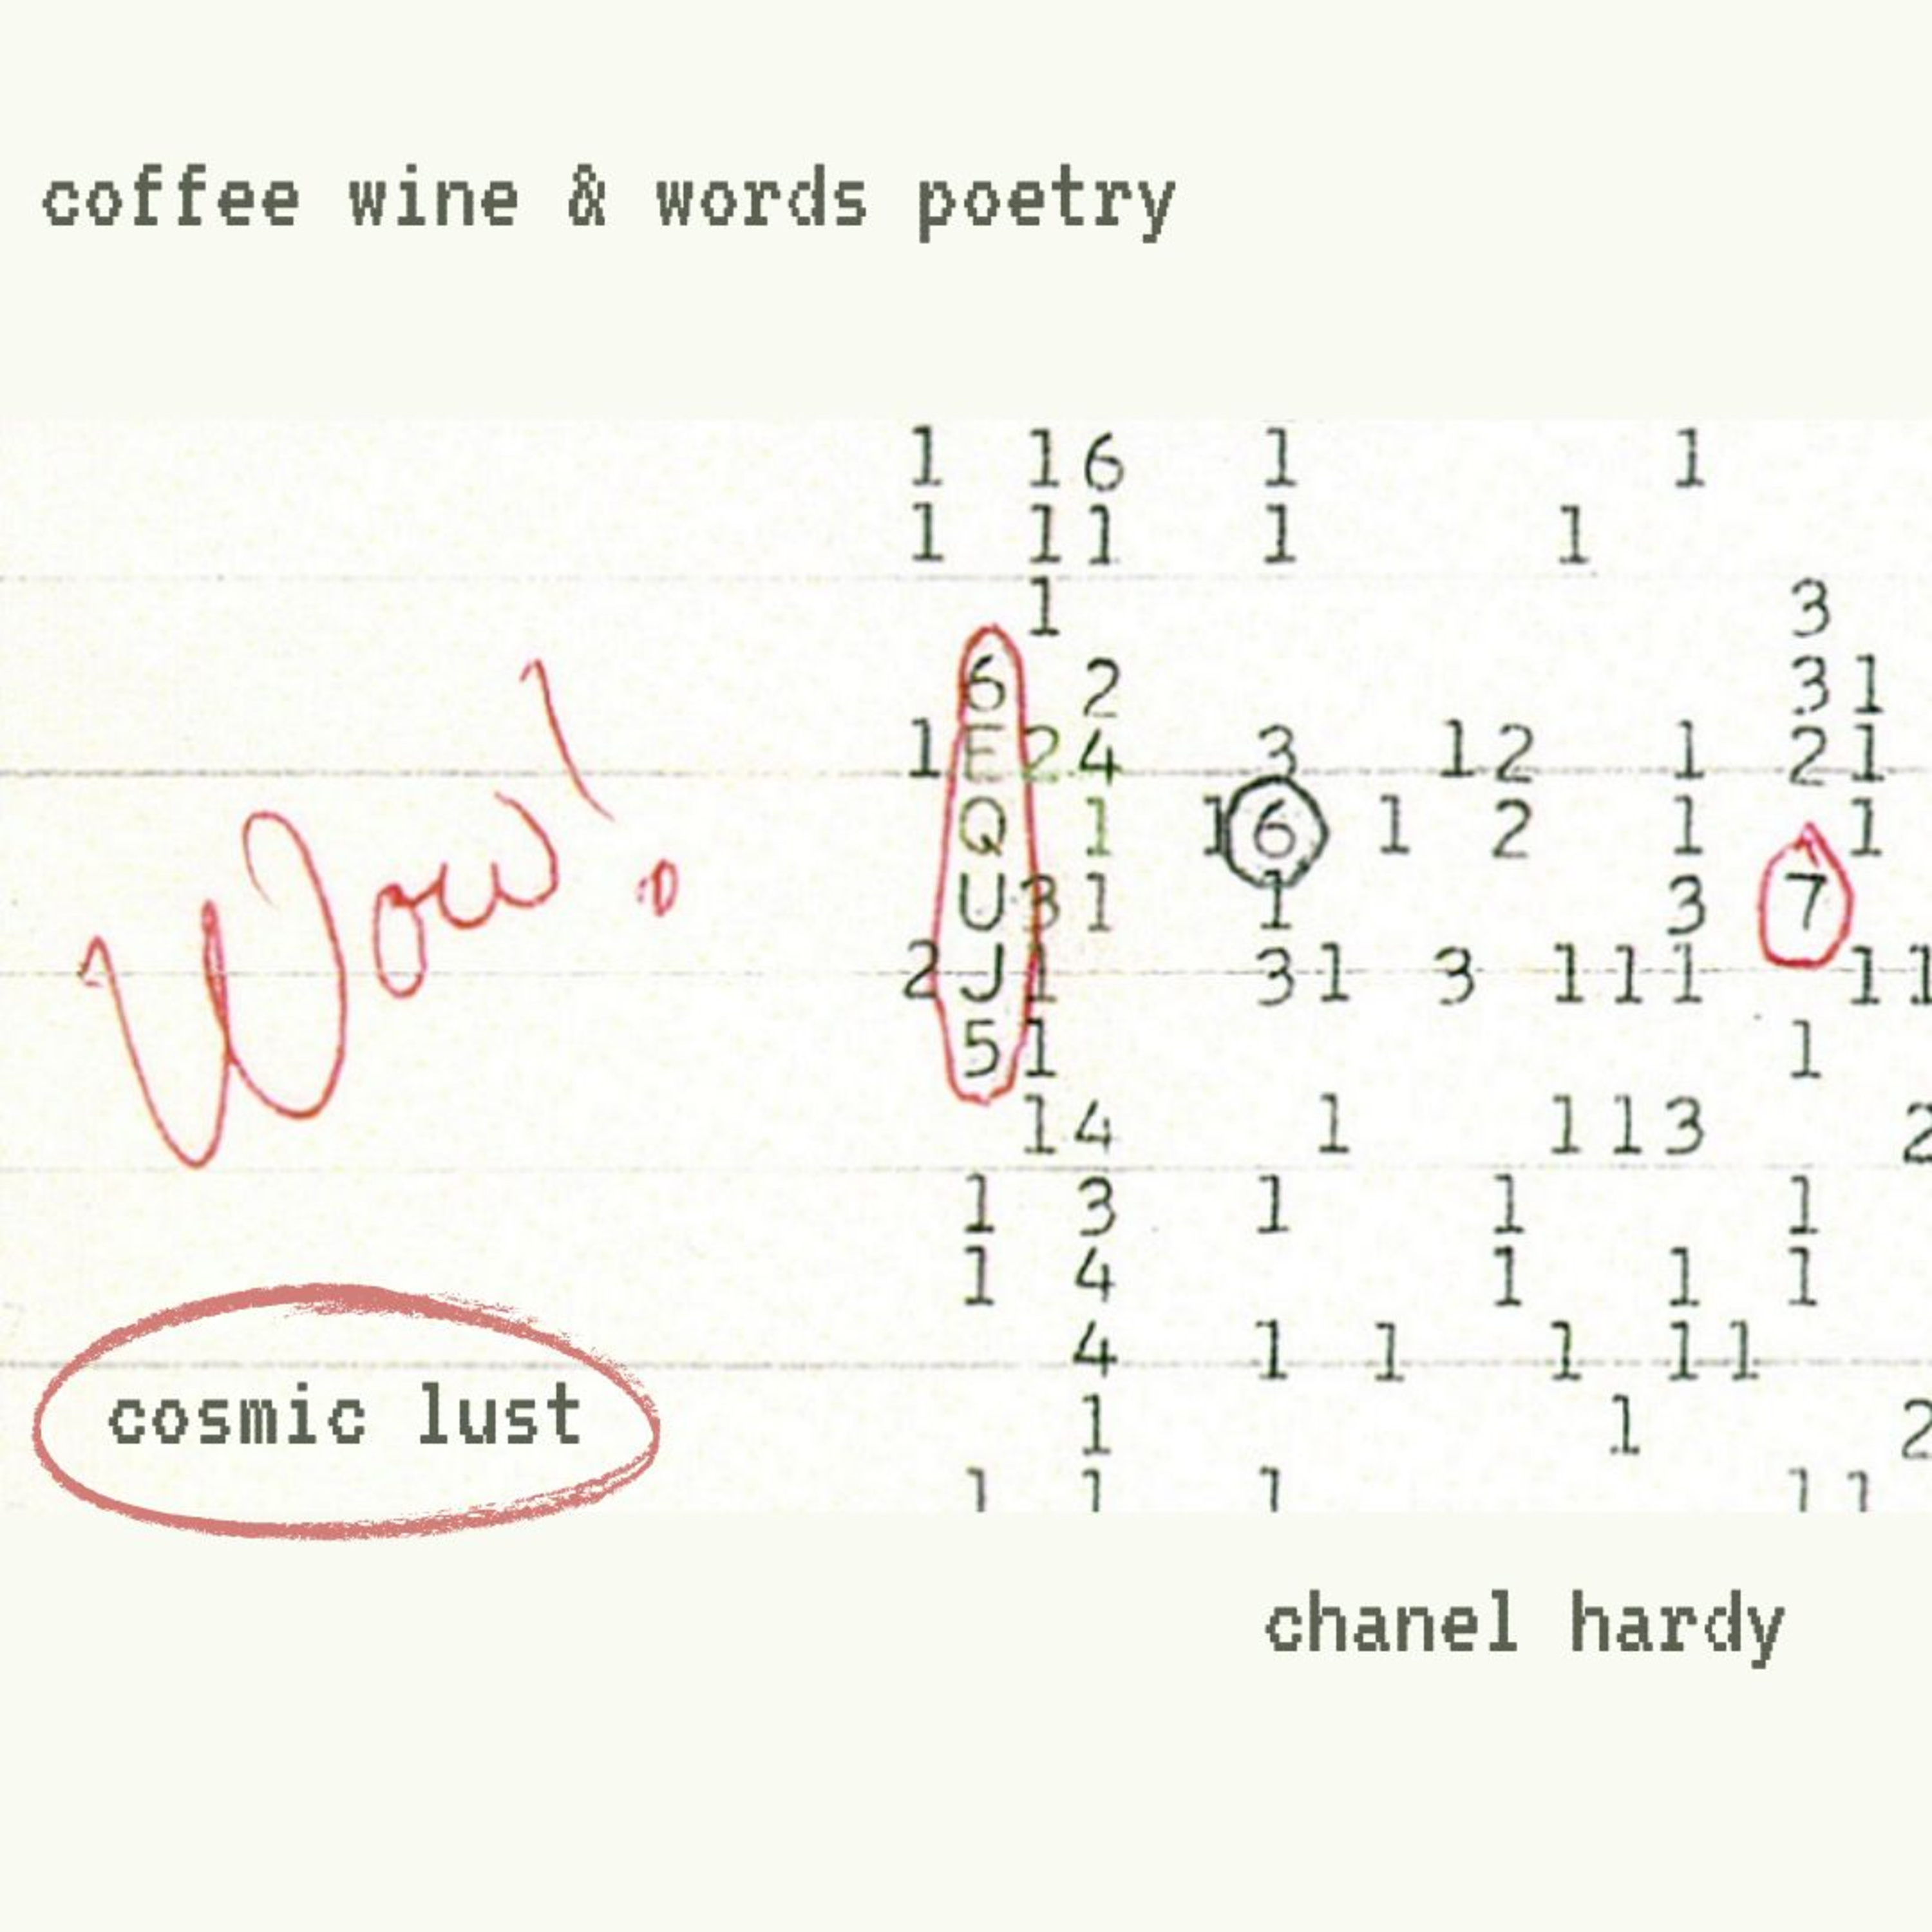 coffee wine & words poetry
1 16 1 1
1 11 1 1
1 3
6 2 31
1E24 3 12 1 21
Wow!
Q 1 16 1 2 1 1
U31 1 3 7
2J1 31 3 111 11
51 1
14 1 113 2
1 3 1 1 1
1 4 1 1 1
4 1 1 1 11
cosmic lust
1 1 2
1 1 1 11
chanel hardy